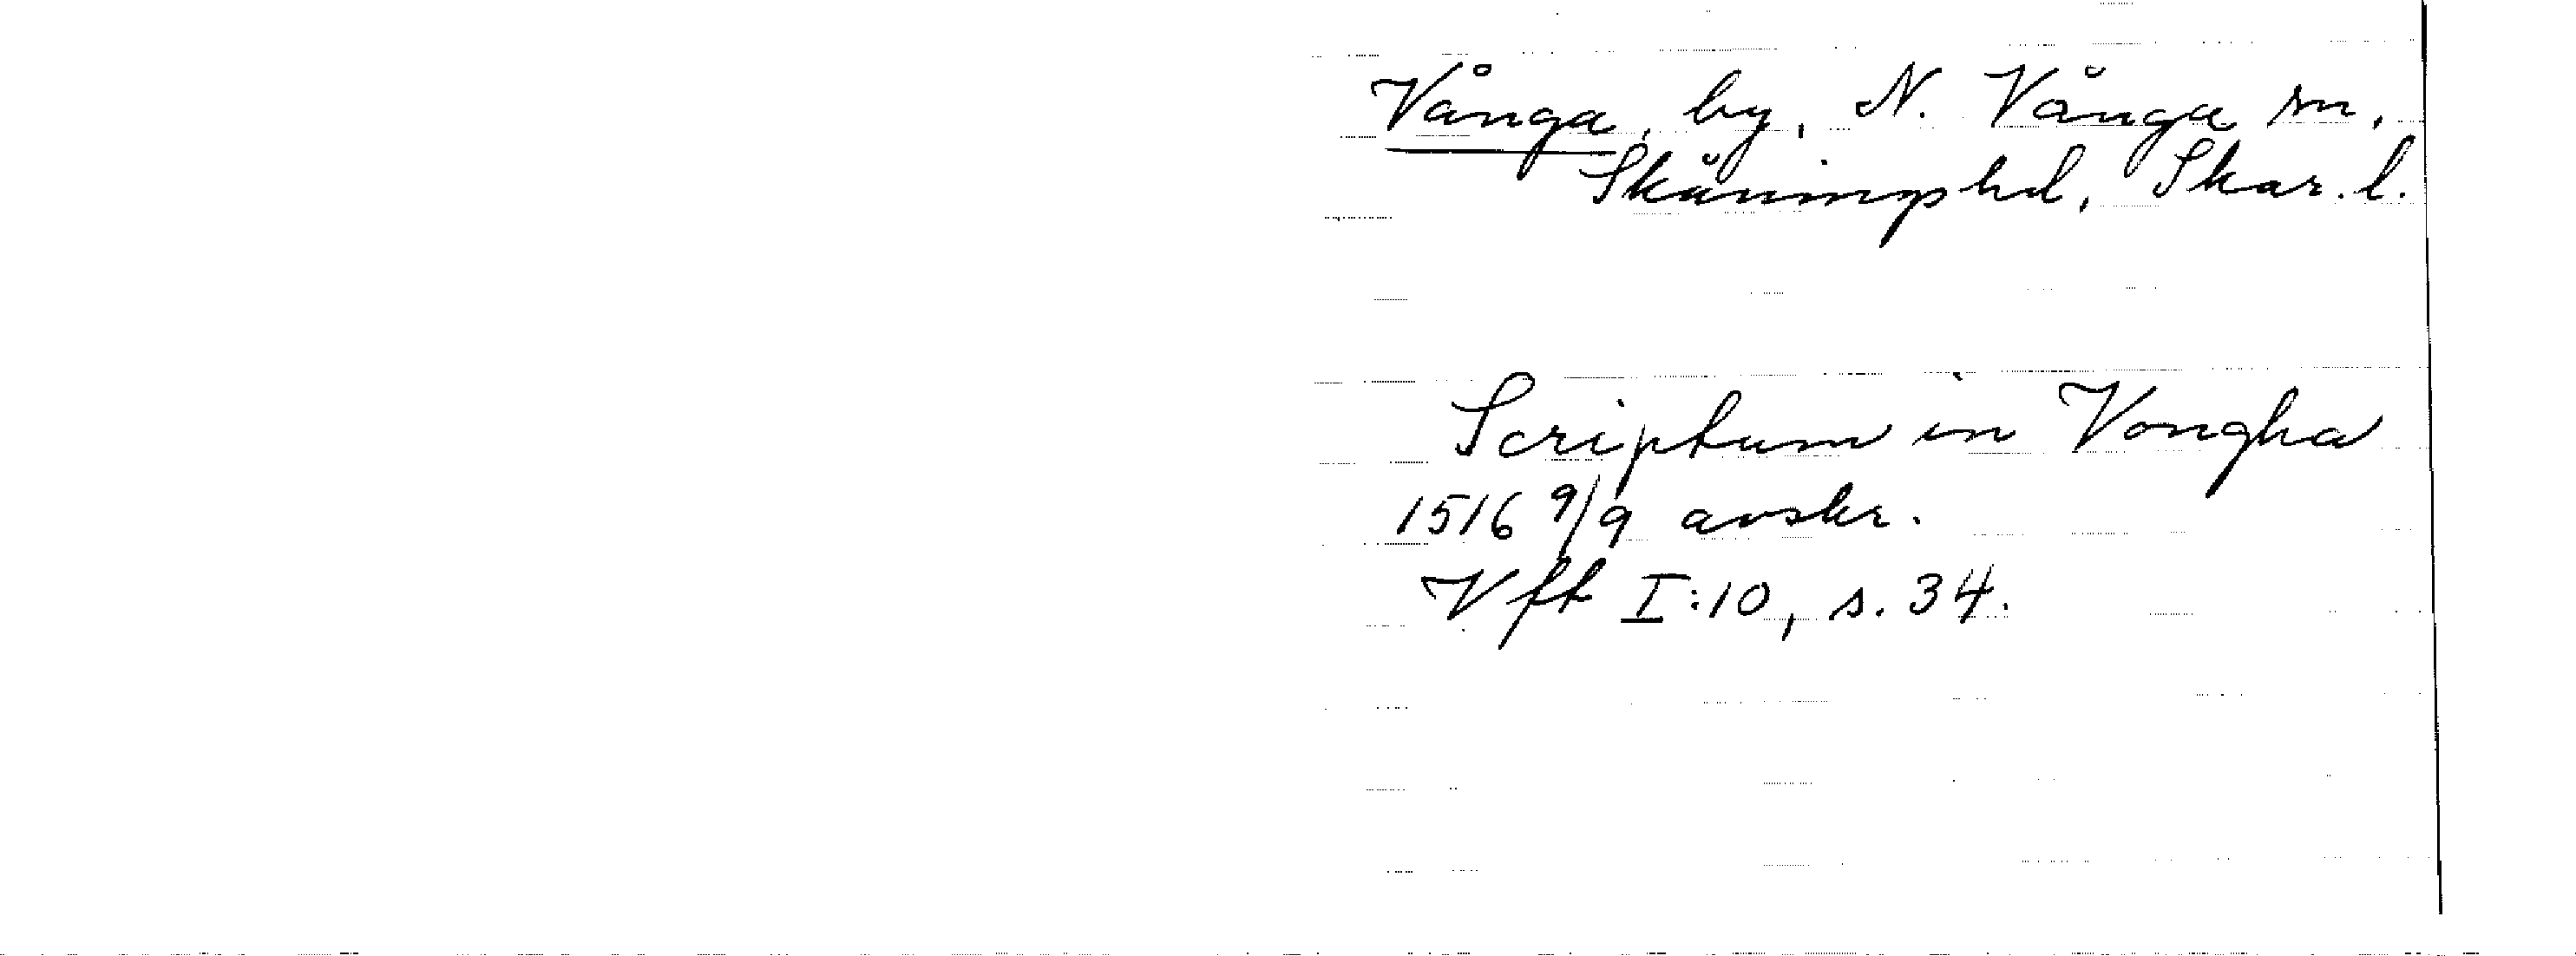 Vånga, by, N. Vånga sn,
Skånings hd, Skar. l.
Scriptum in Vongha
1516 9/9 avskr.
Vft I:10, s. 34.